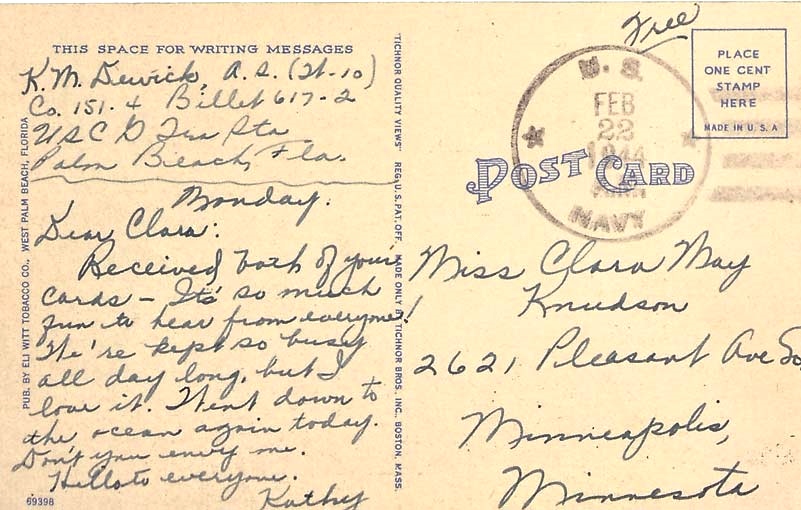 THIS SPACE FOR WRITING MESSAGES
K. M. Dewick, A. S. (W-10)
Co. 151-4 Billet 617-2
USCG Tra Sta
Palm Beach, Fla.
Monday.
Dear Clara:
Received both of your
cards - It's so much
fun to hear from everyone!
We're kept so busy
all day long, but I
love it. Went down to
the ocean again today.
Don't you envy me.
Hello to everyone.
Kathy
69398
PUB. BY ELI WITT TOBACCO CO., WEST PALM BEACH, FLORIDA
"TICHNOR QUALITY VIEWS" REG. U. S. PAT. OFF. MADE ONLY BY TICHNOR BROS., INC., BOSTON, MASS.
Free
PLACE
ONE CENT
STAMP
HERE
MADE IN U. S. A
U. S.
FEB
22
1944
NAVY
POST CARD
Miss Clara May
Knudson
2621 Pleasant Ave So
Minneapolis,
Minnesota